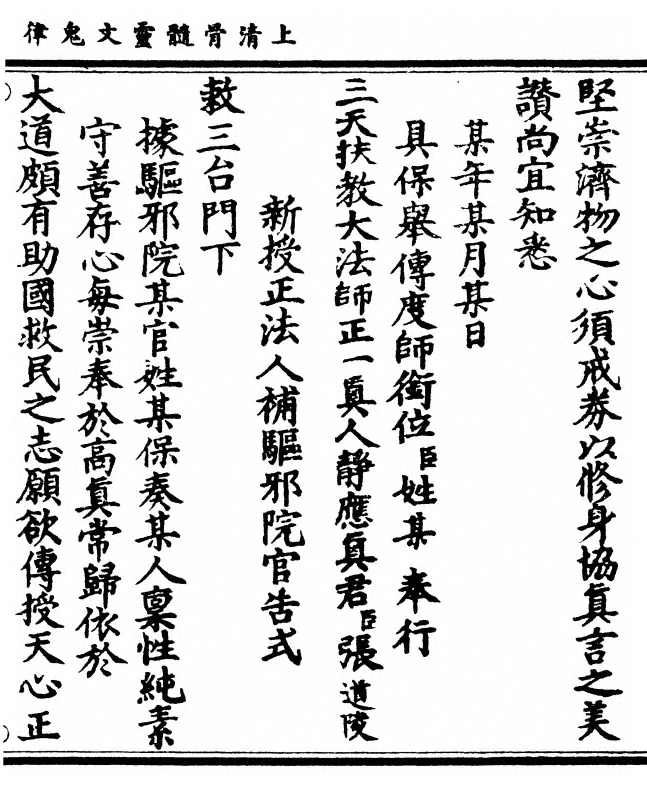 上清骨髓靈文鬼律
堅崇濟物之心須戒券以修身協眞言之美
讚尚宜知悉
某年某月某日
具保舉傳度師銜位臣姓某奉行
三天扶教大法師正一眞人靜應眞君臣張道陵
新授正法人補驅邪院官告式
敕三台門下
據驅邪院某官姓某保奏某人稟性純素
守善存心每崇奉於高眞常歸依於
大道頗有助國救民之志願欲傳授天心正